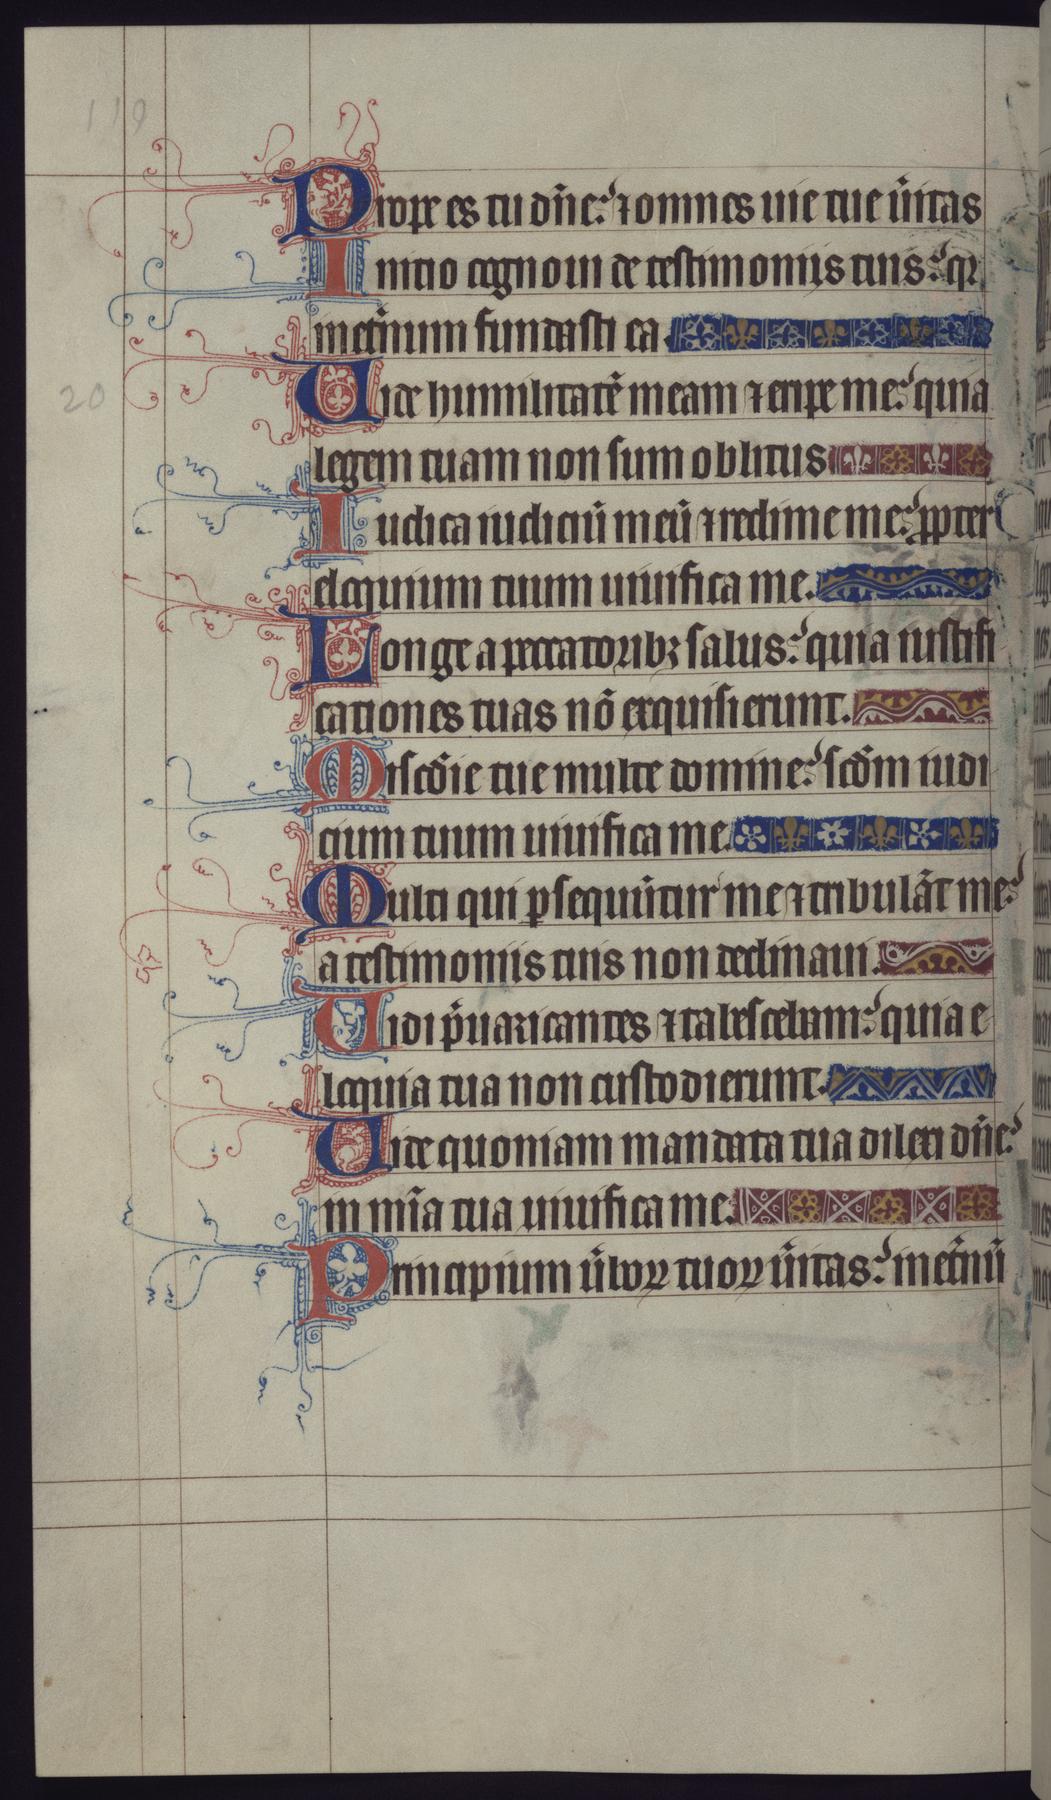 119
Prope es tu dn̄e: ⁊ omnes uie tue ūitas
Initio cognoui de testimoniis tuis: qr
inet̄num fundasti ea
20
Uide humilitatē meam ⁊ eripe me: quia
legem tuam non sum oblitus
Iudica iudiciū meū ⁊ redime me: ꝓpter
eloquium tuum uiuifica me.
Longe a peccatoribꝫ salus: quia iustifi
cationes tuas nō exquisierunt.
Miscd̄ie tue multe domine: scd̄m iudi
cium tuum uiuifica me
Multi qui ꝑsequūtur me ⁊ tribulāt me:
a testimoniis tuis non declinaui.
Uidi p̄uaricantes ⁊ tabescebam: quia e
loquia tua non custodierunt.
Uide quoniam mandata tua dilexi dn̄e:
in mīa tua uiuifica me.
Principium ūboꝝ tuoꝝ ūitas: inet̄nū